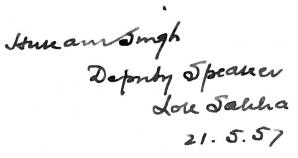 Hukam Singh
Deputy Speaker
Lok Sabha
21.5.57